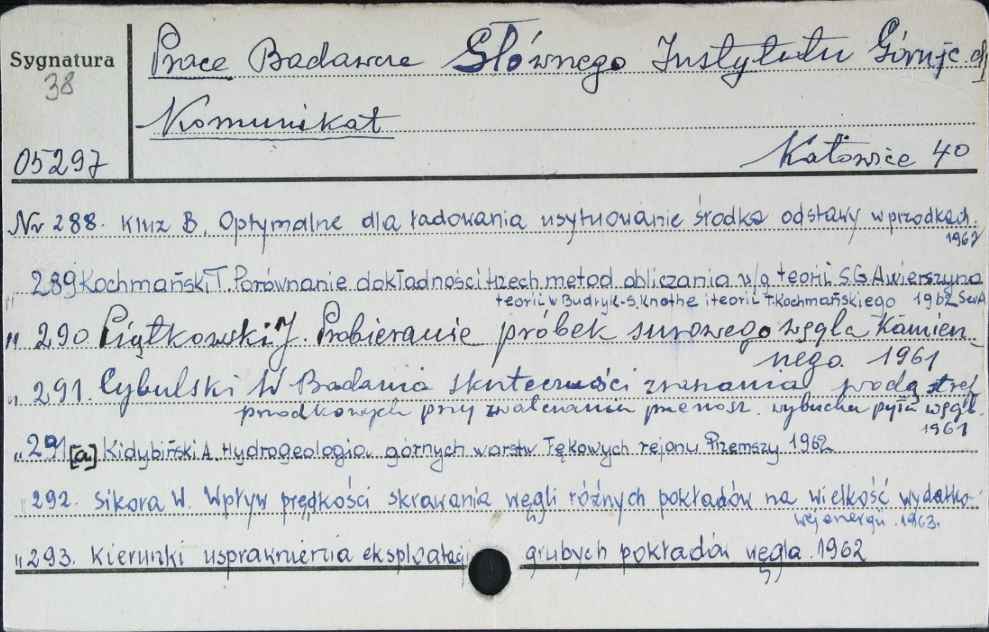 Sygnatura
38
05297
Prace Badawcze Głównego Instytutu Górnic.
Komunikat
Katowice 40
Nr 288. Kluz B. Optymalne dla ładowania usytuowanie środka odstawy w przodkach.
1962
" 289 Kochmański T. Porównanie dokładności trzech metod obliczania w/g teorii S.G. Awierszyna
teorii W Budryk-S. Knothe i teorii T. Kochmańskiego 1962 Ser A
" 290 Piątkowski J. Probieranie próbek surowego węgla Kamien-
nego. 1961
" 291. Cybulski W Badania skuteczności zraszania wodą stref
przodkowych przy zwalczaniu przenosz. wybuchu pyłu węgl.
1961
" 291 [a] Kidybiński A Hydrogeologia górnych warstw Łękowych rejonu Przemszy 1962
292. Sikora W. Wpływ prędkości skrawania węgli różnych pokładów na wielkość wydatko-
wej energii. 1963.
" 293. Kierunki usprawnienia eksploatacji grubych pokładów węgla. 1962